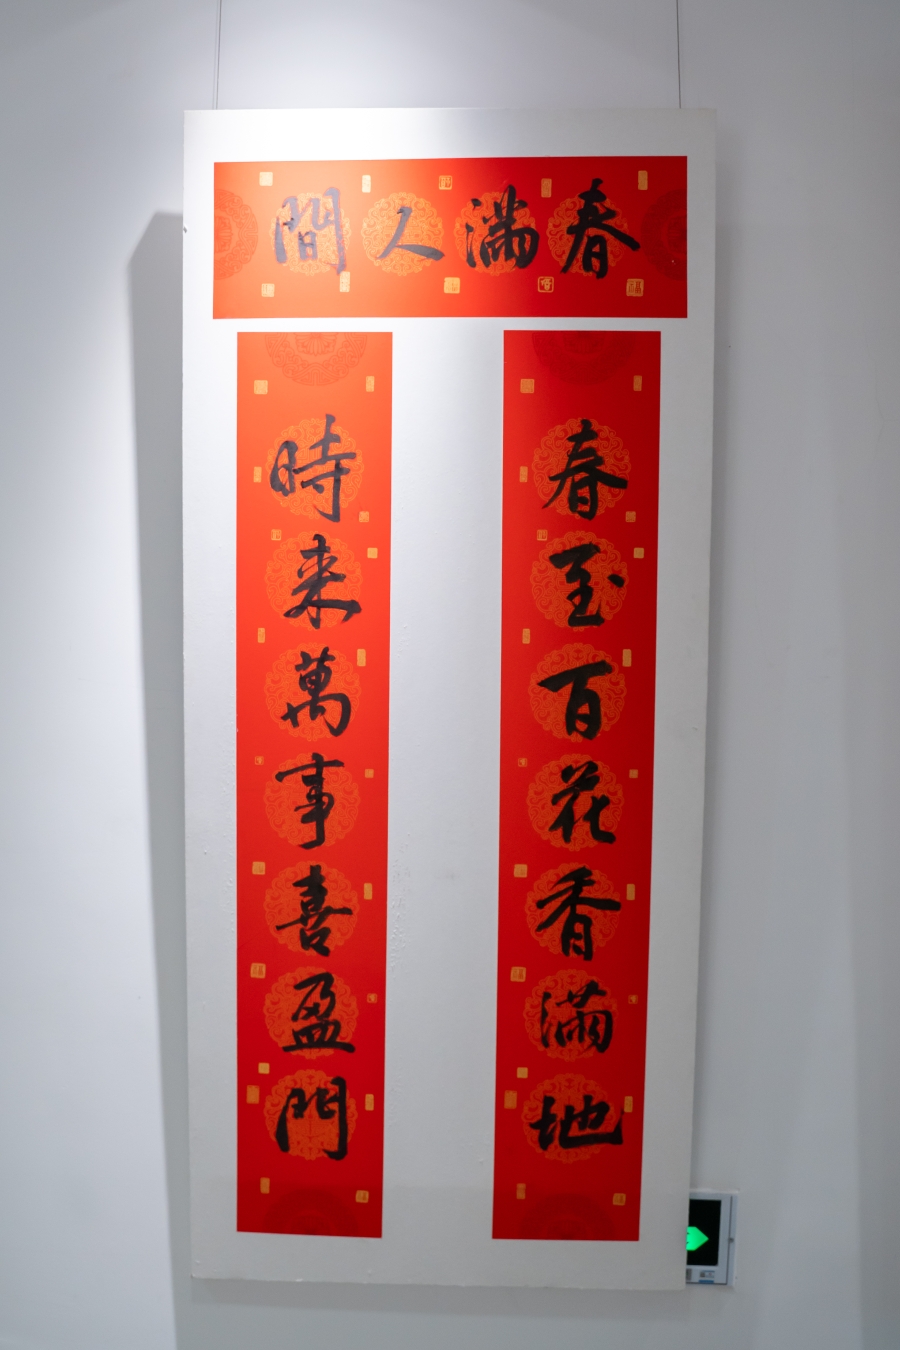 春滿人間
春至百花香滿地
時来萬事喜盈門